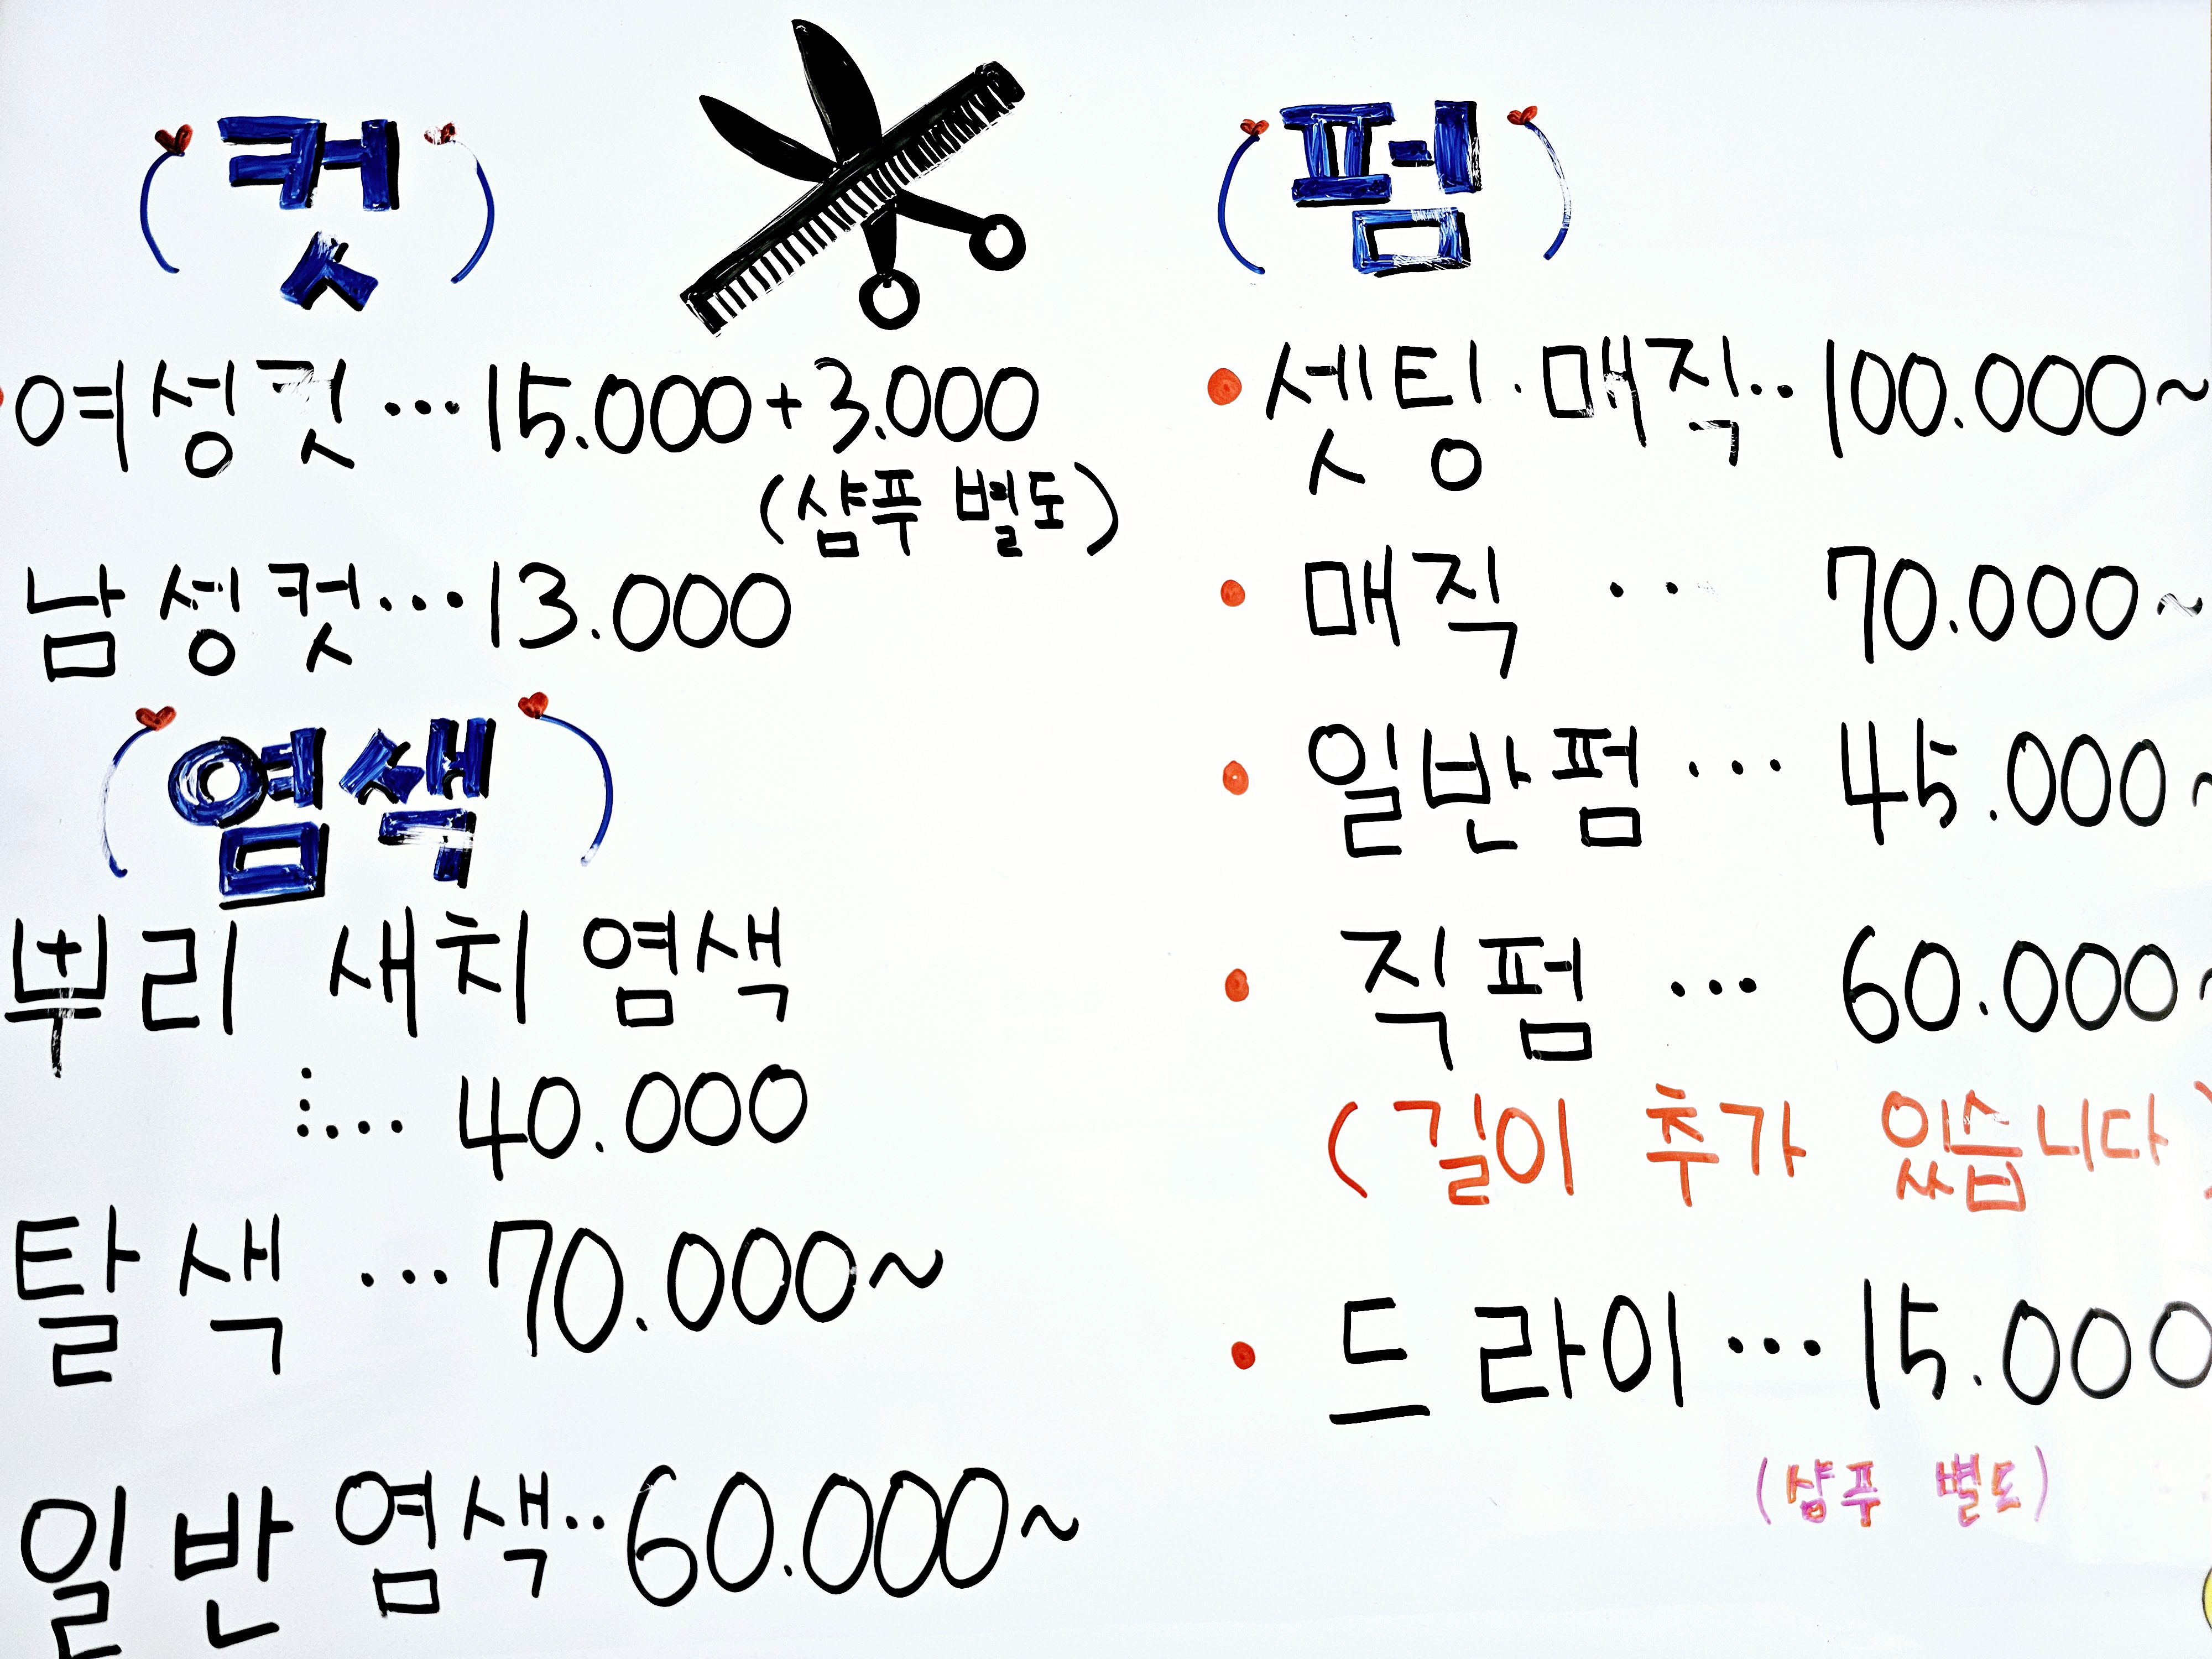 (컷)
여성컷...15.000+3.000
(샴푸 별도)
남성컷...13.000
(염색)
뿌리 새치 염색
:... 40.000
탈색 ...70.000~
일반 염색..60.000~
(펌)
• 셋팅.매직..100.000~
• 매직 .. 70.000~
• 일반펌 ... 45.000~
• 직펌 ... 60.000~
(길이 추가 있습니다)
• 드라이...15.000
(샴푸 별도)